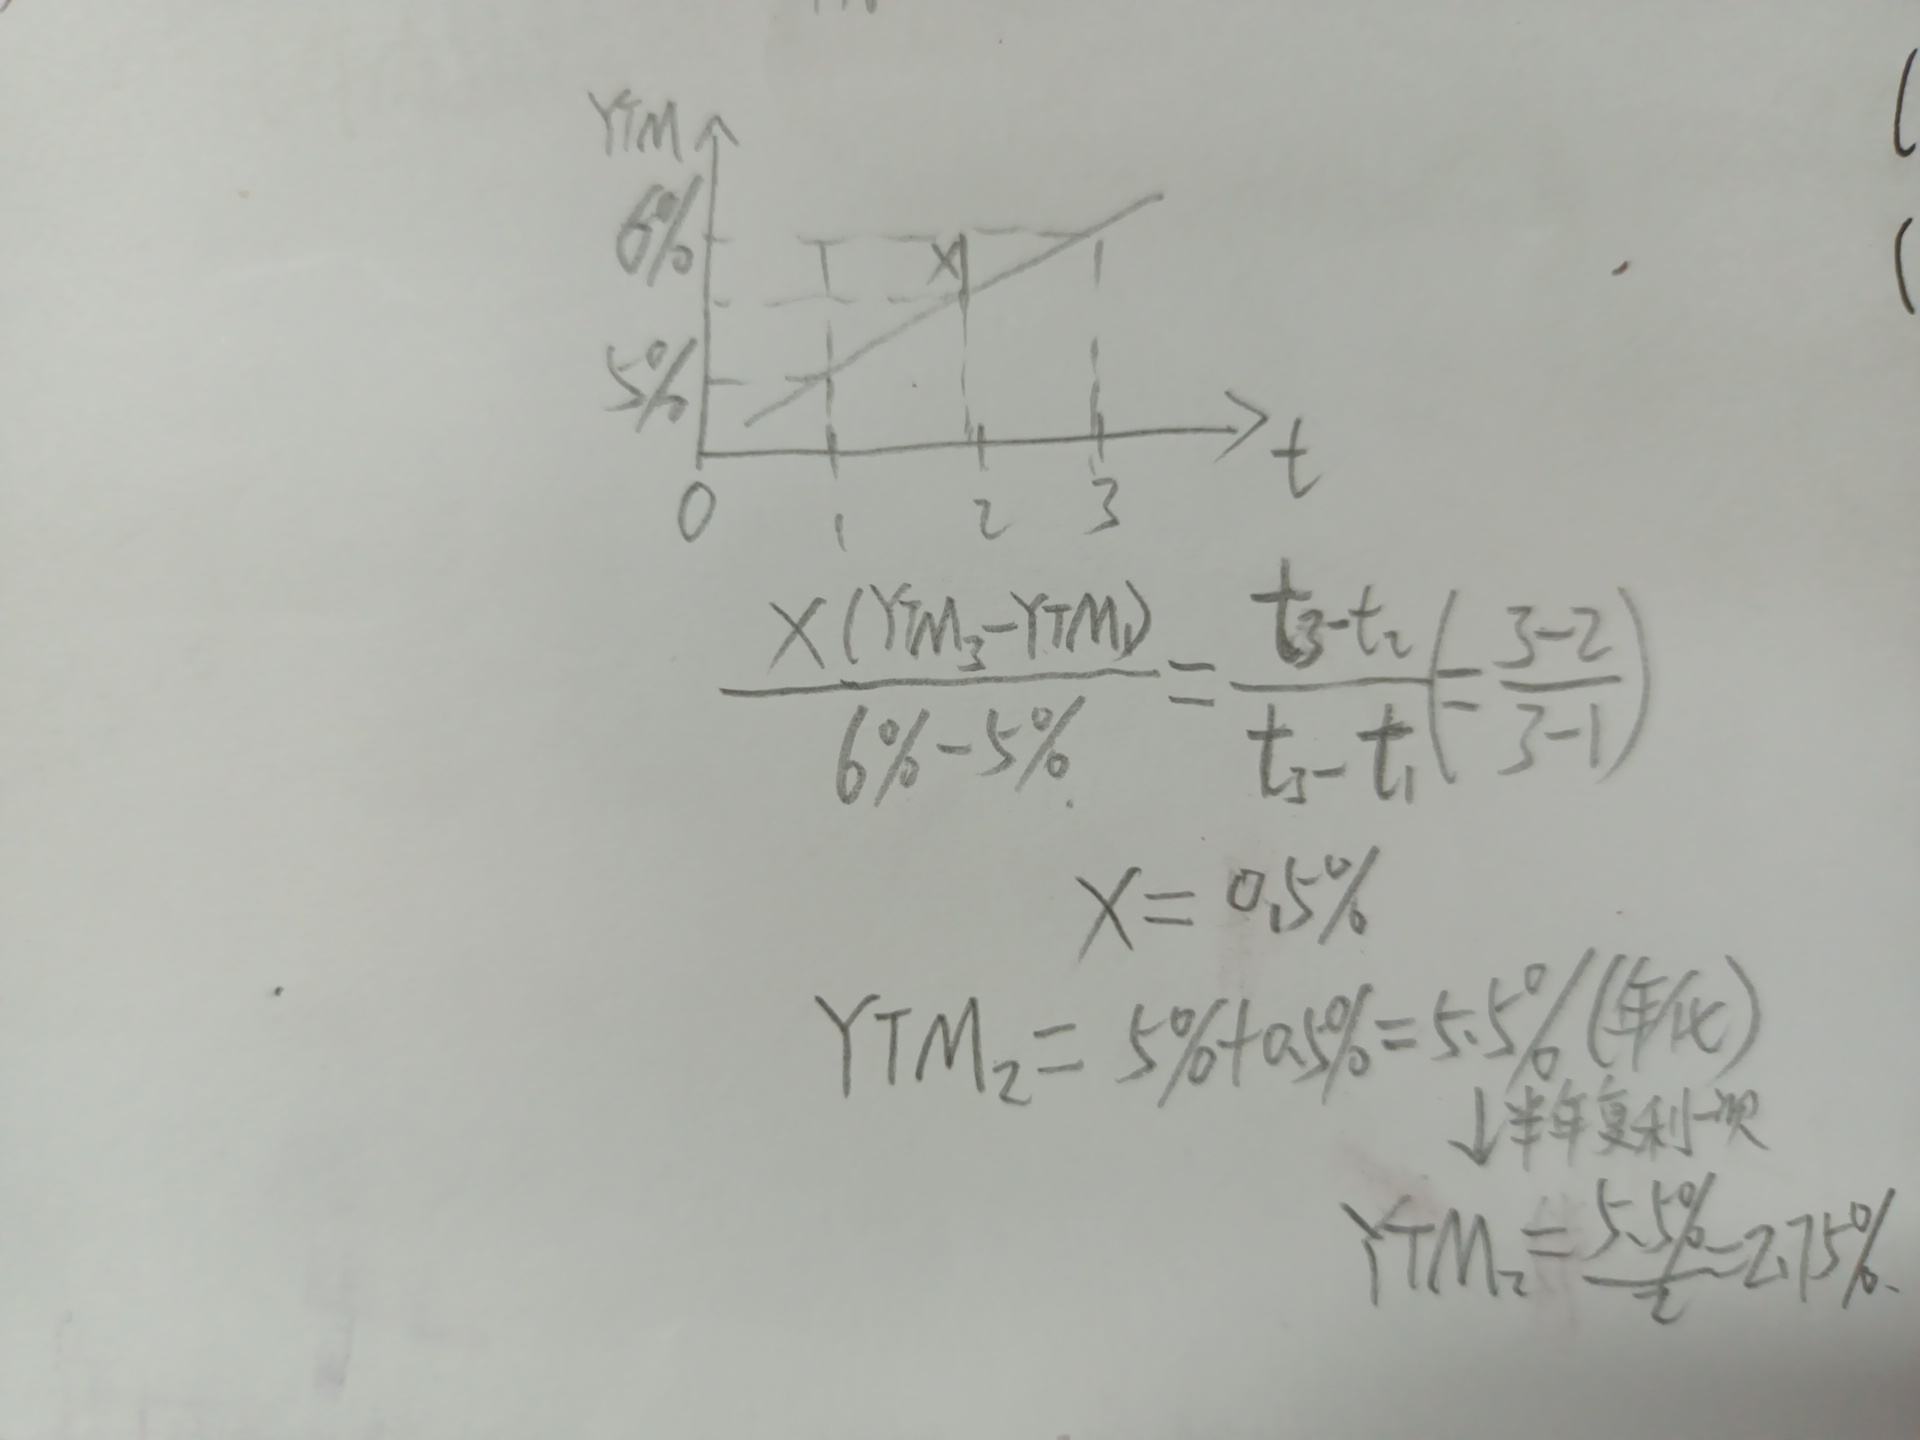 YTM
6%
X
5%
t
0 1 2 3
X(YTM₃-YTM₁) / 6%-5% = t₃-t₂ / t₃-t₁ (= 3-2 / 3-1)
X = 0.5%
YTM₂ = 5%+0.5% = 5.5% (年化)
↓半年复利一次
YTM₂ = 5.5% / 2 = 2.75%.